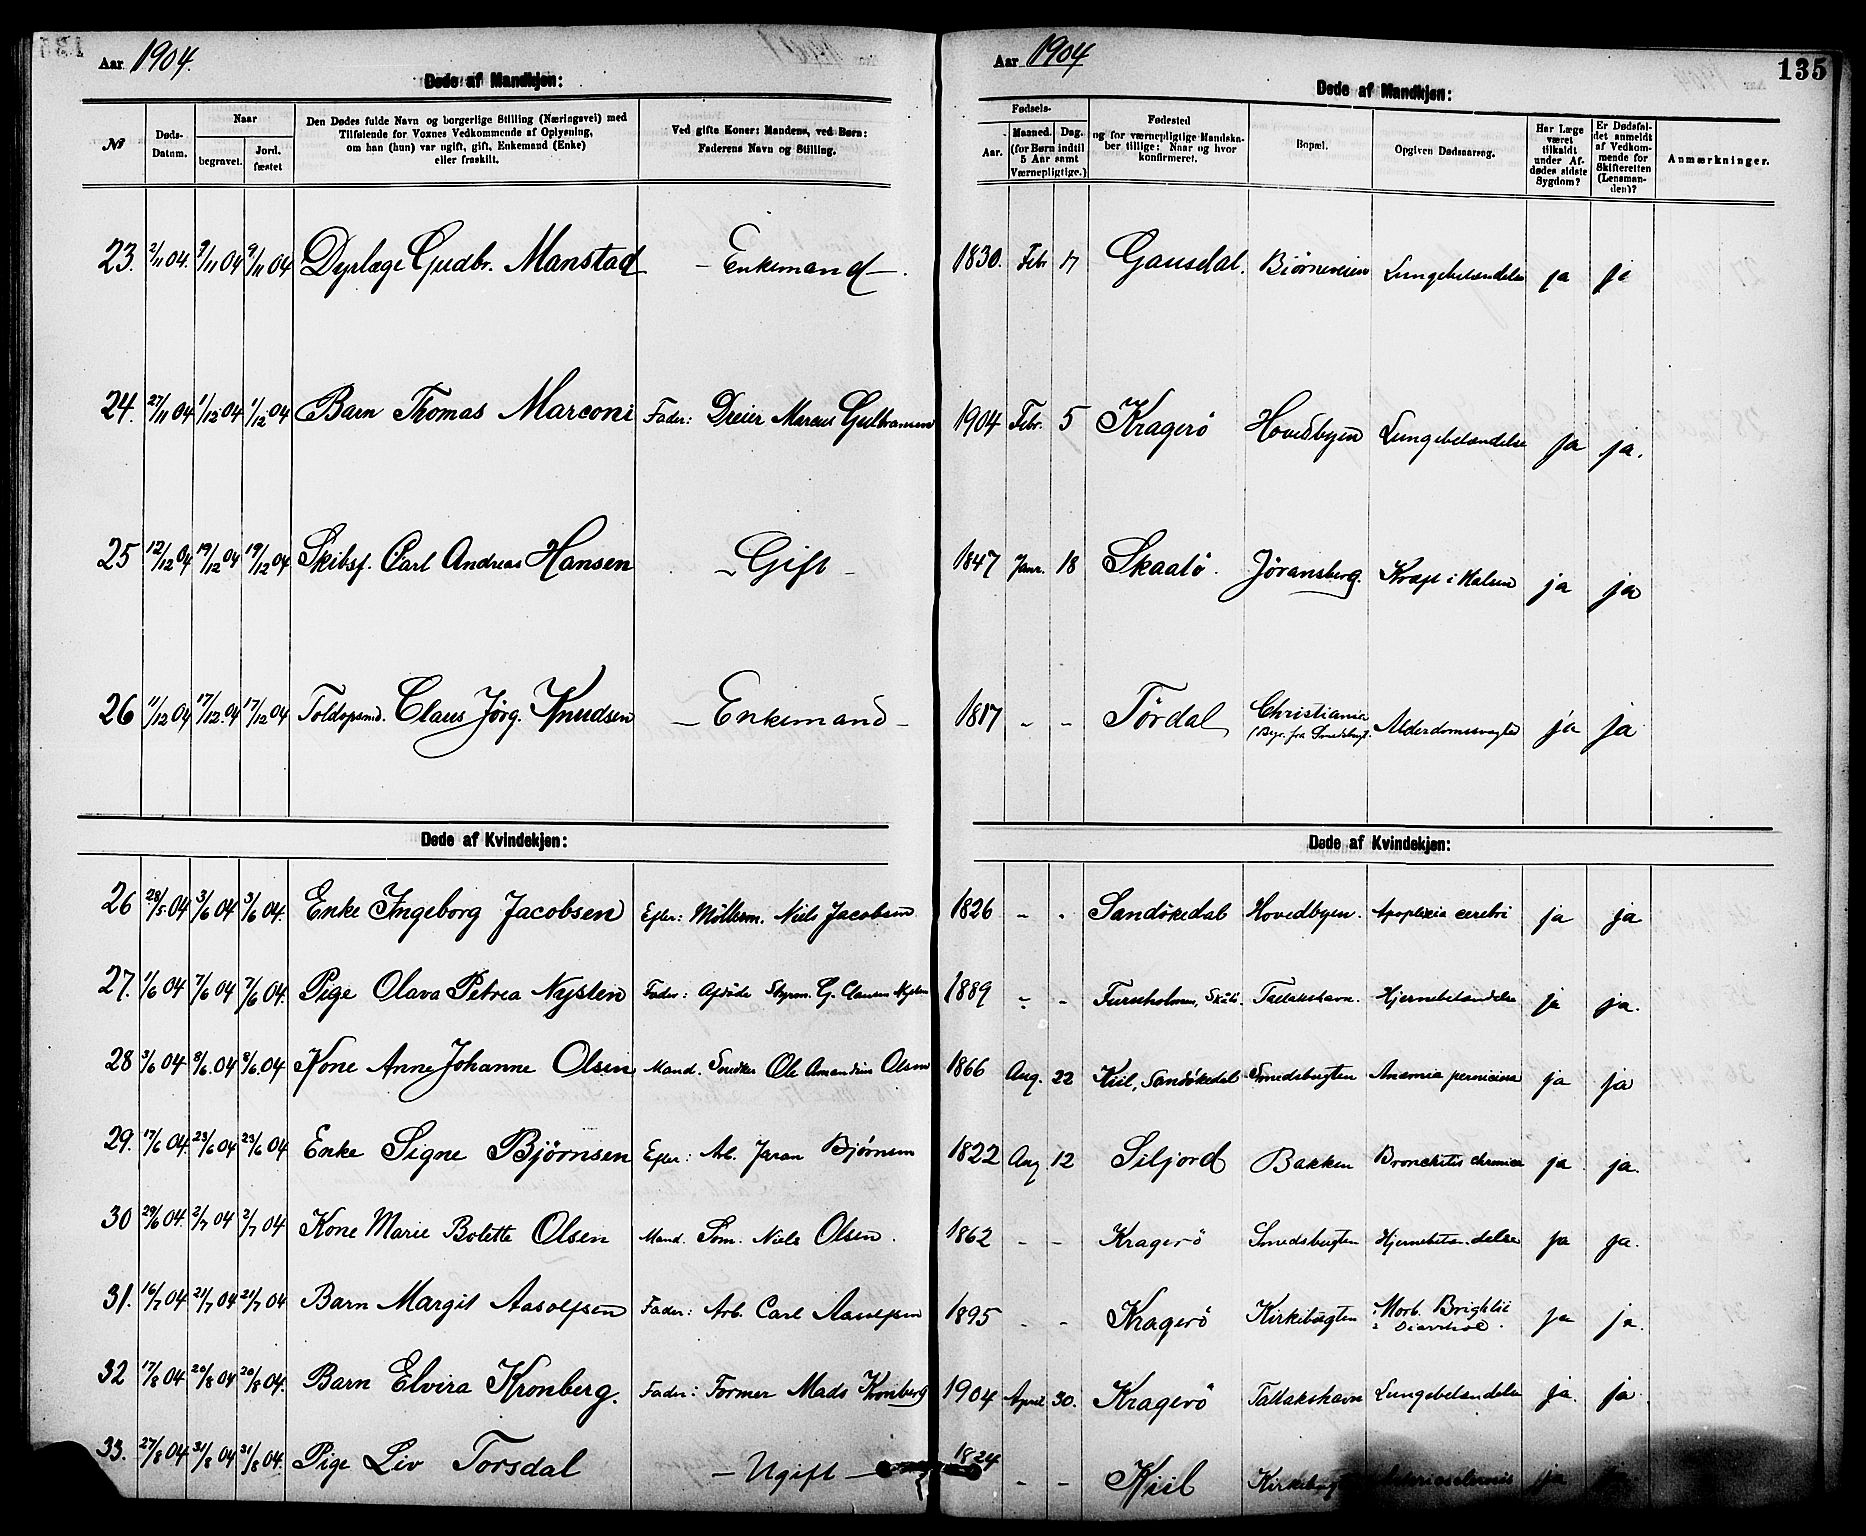 Aar 1904.
Døde af Mandkjøn:
№
Døds-Datum.
Naar
begravet.
Jord.fæstet
Den Dødes fulde Navn og borgerlige Stilling (Næringsvei) med
Tilføiende for Voxnes Vedkommende af Oplysning,
om han (hun) var ugift, gift, Enkemand (Enke)
eller fraskilt.
Ved gifte Koner: Mandens, ved Børn:
Faderens Navn og Stilling.
Aar 1904
135
Døde af Mandkjøn:
Fødsels-
Aar.
Maaned.
Dag.
(for Børn indtil
5 Aar samt
Værnepligtige.)
Fødested
og for værnepligtige Mandska-
ber tillige: Naar og hvor
konfirmeret.
Bopæl.
Opgiven Dødsaarsag.
Har Læge
været
tilkaldt
under Af-
dødes sidste
Sygdom?
Er Dødsfal-
det anmeldt
af Vedkom-
mende for
Skifteretten
(Lensman-
den)?
Anmærkninger.
23. 2/11 04. 9/11 04 9/11 04 Dyrlæge Gudbr. Manstad – Enkemand – 1830. Febr 17 Gausdal. Biørneveien Lungebetændelse ja ja
24. 27/11 04 1/12 04 1/12 04 Barn Thomas Marconi Fader: Dreier Marcus Gulbransen 1904 Febr. 5 Kragerö Hovedbyen Lungebetændelse ja ja.
25 12/12 04 19/12 04 19/12 04 Skibsf. Carl Andreas Hansen – Gift – 1847 Janr. 18 Skaatö. Jøransberg. Kræft i Halsen ja ja
26 11/12 04 17/12 04 17/12 04 Toldopsmd. Claus Jørg. Knudsen – Enkemand – 1817 – – Tördal Christiania
(Begr. fra Smedsbugt. Alderdomssvaghed ja ja
Døde af Kvindekjøn:
Døde af Kvindekjøn:
26 28/5 04 3/6 04 3/6 04. Enke Ingeborg Jacobsen Efter: Møllerm. Niels Jacobsen 1826 – - Sandökedal Hovedbyen. Apoplexia cerebri ja ja
27. 1/6 04 7/6 04 7/6 04. Pige Olava Petrea Nysten Fader: Afdöde Styrm. G. Clausen Nysten 1889 – - Furuholmen, Skåtö. Tallakshavn. Hjernebetændelse ja ja.
28 3/6 04 8/6. 04 8/6. 04 Kone Anne Johanne Olsen Mand. Snedker Ole Amandius Olsen 1866 Aug. 22 Kiil, Sandökedal Smedsbugten Anæmia perniciosa ja ja
29. 17/6 04. 23/6 04 23/6 04. Enke Signe Bjørnsen Efter: Arb. Jøran Bjørnsen 1822 Aug 12 Siljord Bakken Bronchitis chronica ja ja.
30 29/6 04. 2/7 04 2/7 04 Kone Marie Bolette Olsen Mand. Söm. Niels Olsen. 1862 – – Kragerö Smedsbugten Hjernebetændelse ja ja.
31. 16/7 04 21/7 04 21/7 04 Barn Margit Aasolfsen Fader: Arb. Carl Aasolfsen 1895 - - Kragerö Kirkebugten Morb. Brightii
Diarrhoe. ja ja.
32 17/8 04 20/8 04 20/8 04. Barn Elvira Kronberg. Fader: Former Mads Kronberg 1904 April 30. Kragerö Tallakshavn Lungebetændelse ja. ja.
33. 27/8 04 31/8 04 31/8 04. Pige Liv Torsdal – Ugift – 1824 – – Kiil Kirkebugten ja ja